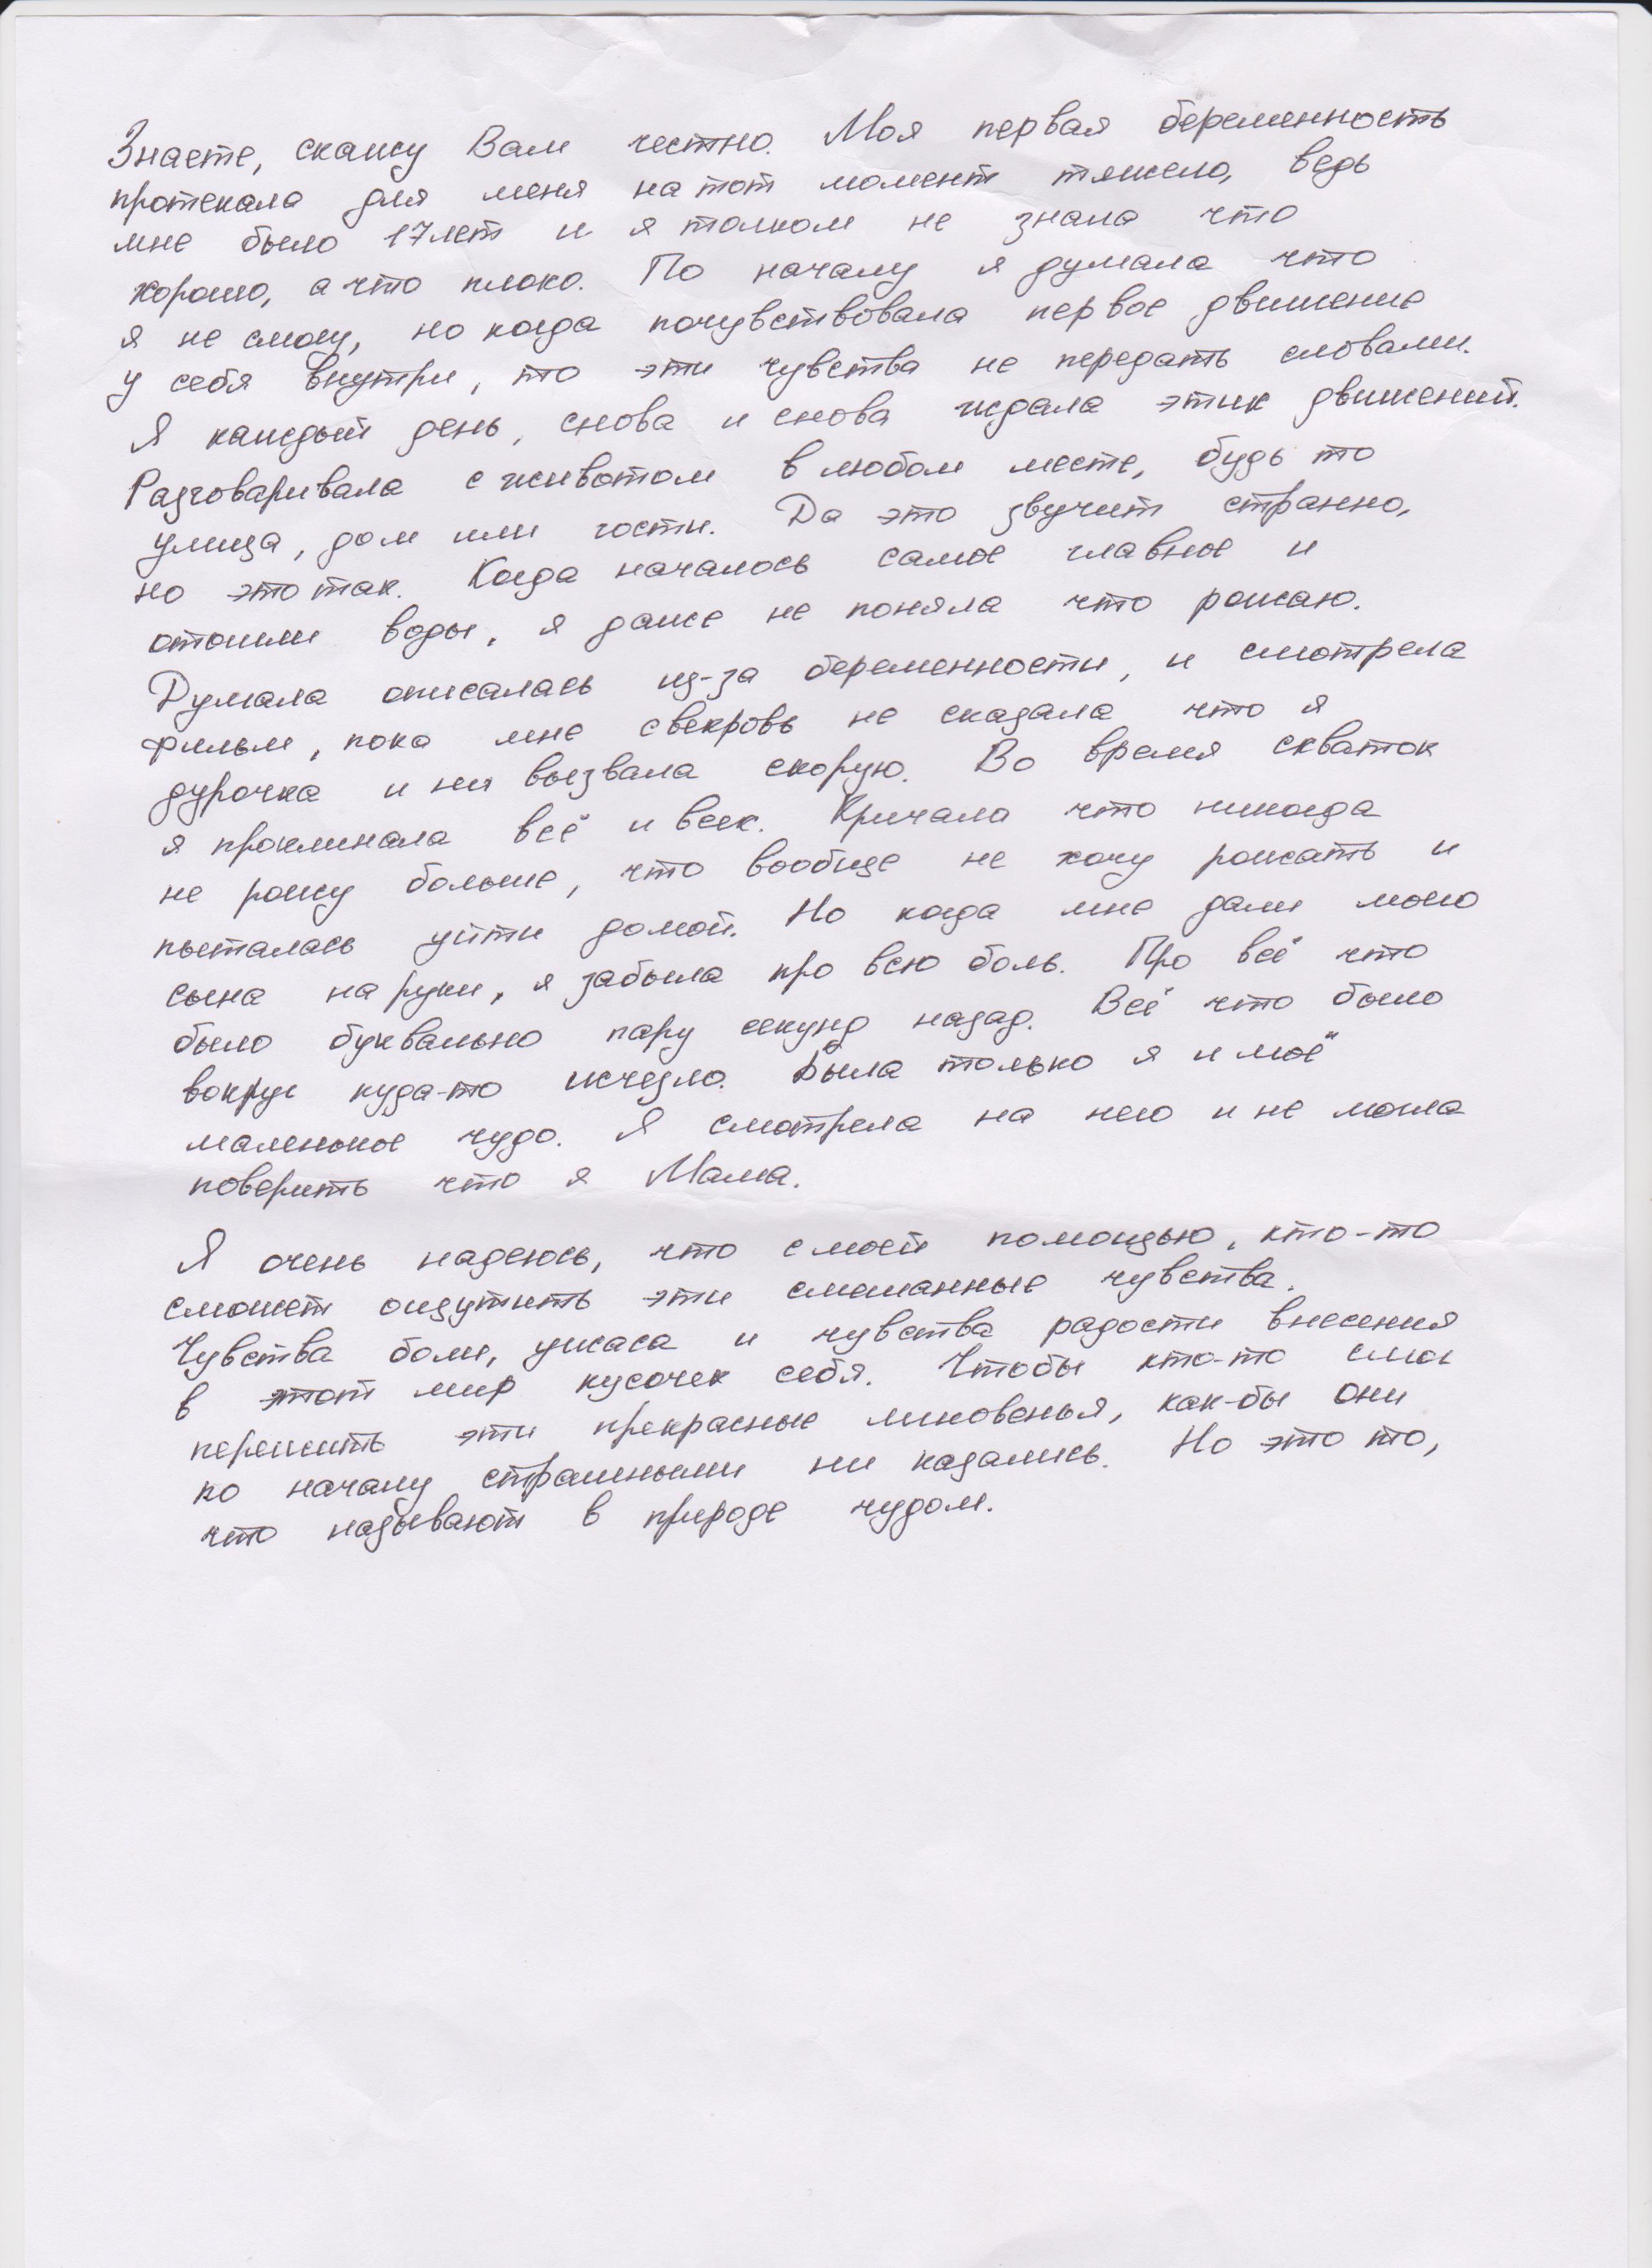 Знаете, скажу Вам честно. Моя первая беременность
протекала для меня на тот момент тяжело, ведь
мне было 17 лет и я толком не знала что
хорошо, а что плохо. По началу я думала что
я не смогу, но когда почувствовала первое движение
у себя внутри, то эти чувства не передать словами.
Я каждый день, снова и снова ждала этих движений.
Разговаривала с животом в любом месте, будь то
улица, дом или гости. Да это звучит странно,
но это так. Когда началось самое главное и
отошли воды, я даже не поняла что рожаю.
Думала описалась из-за беременности, и смотрела
фильм, пока мне свекровь не сказала что я
дурочка и не вызвала скорую. Во время схваток
я проклинала всё и всех. Кричала что никогда
не рожу больше, что вообще не хочу рожать и
пыталась уйти домой. Но когда мне дали моего
сына на руки, я забыла про всю боль. Про всё что
было буквально пару секунд назад. Всё что было
вокруг куда-то исчезло. Была только я и моё
маленькое чудо. Я смотрела на него и не могла
поверить что я Мама.
Я очень надеюсь, что с моей помощью, кто-то
сможет ощутить эти смешанные чувства.
Чувства боли, ужаса и чувства радости внесения
в этот мир кусочек себя. Чтобы кто-то смог
пережить эти прекрасные мгновенья, как-бы они
по началу страшными ни казались. Но это то,
что называют в природе чудом.